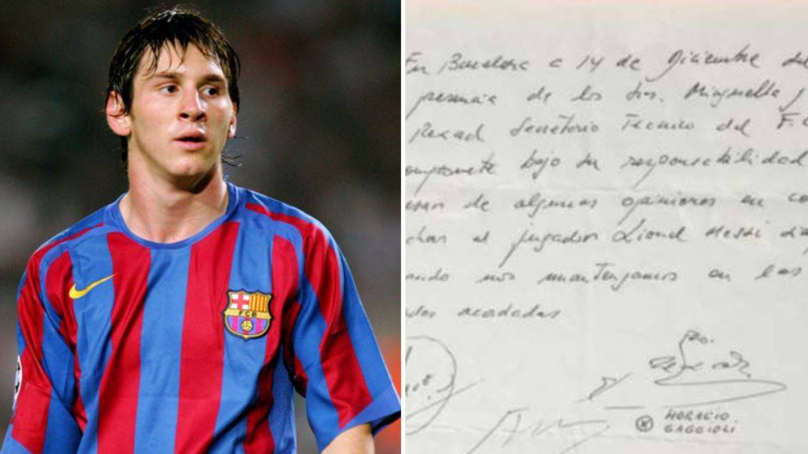 En Barcelona a 14 de Diciembre del
presencia de los Sres. Minguella y
Rexach Secretario Tecnico del F.C
ompromete bajo su responsabilidad
esar de algunas opiniones en co
char al jugador Lionel Messi
ando nos mantengamos en las
dades acordadas
HORACIO
GAGGIOLI
FCB